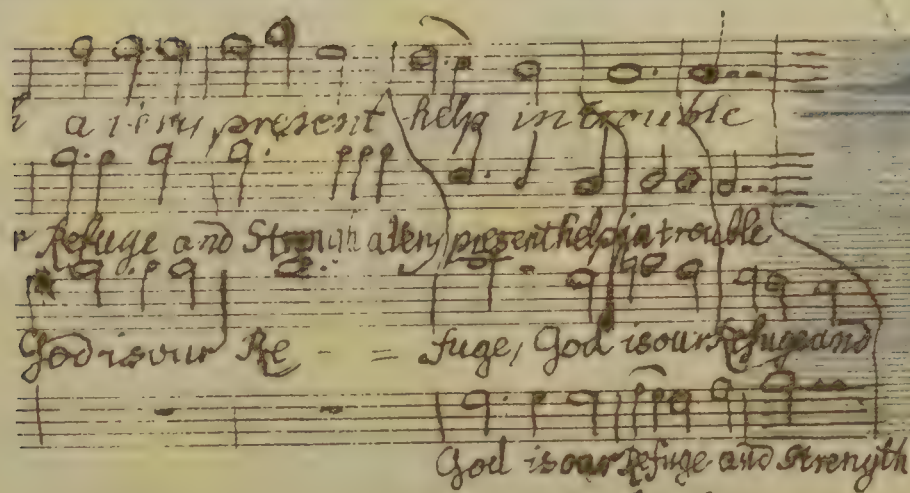 a very present help in trouble
r Refuge and Strength a Very present help in trouble
God is our Re - = fuge, God is our Refuge and
God is our Refuge and Strength